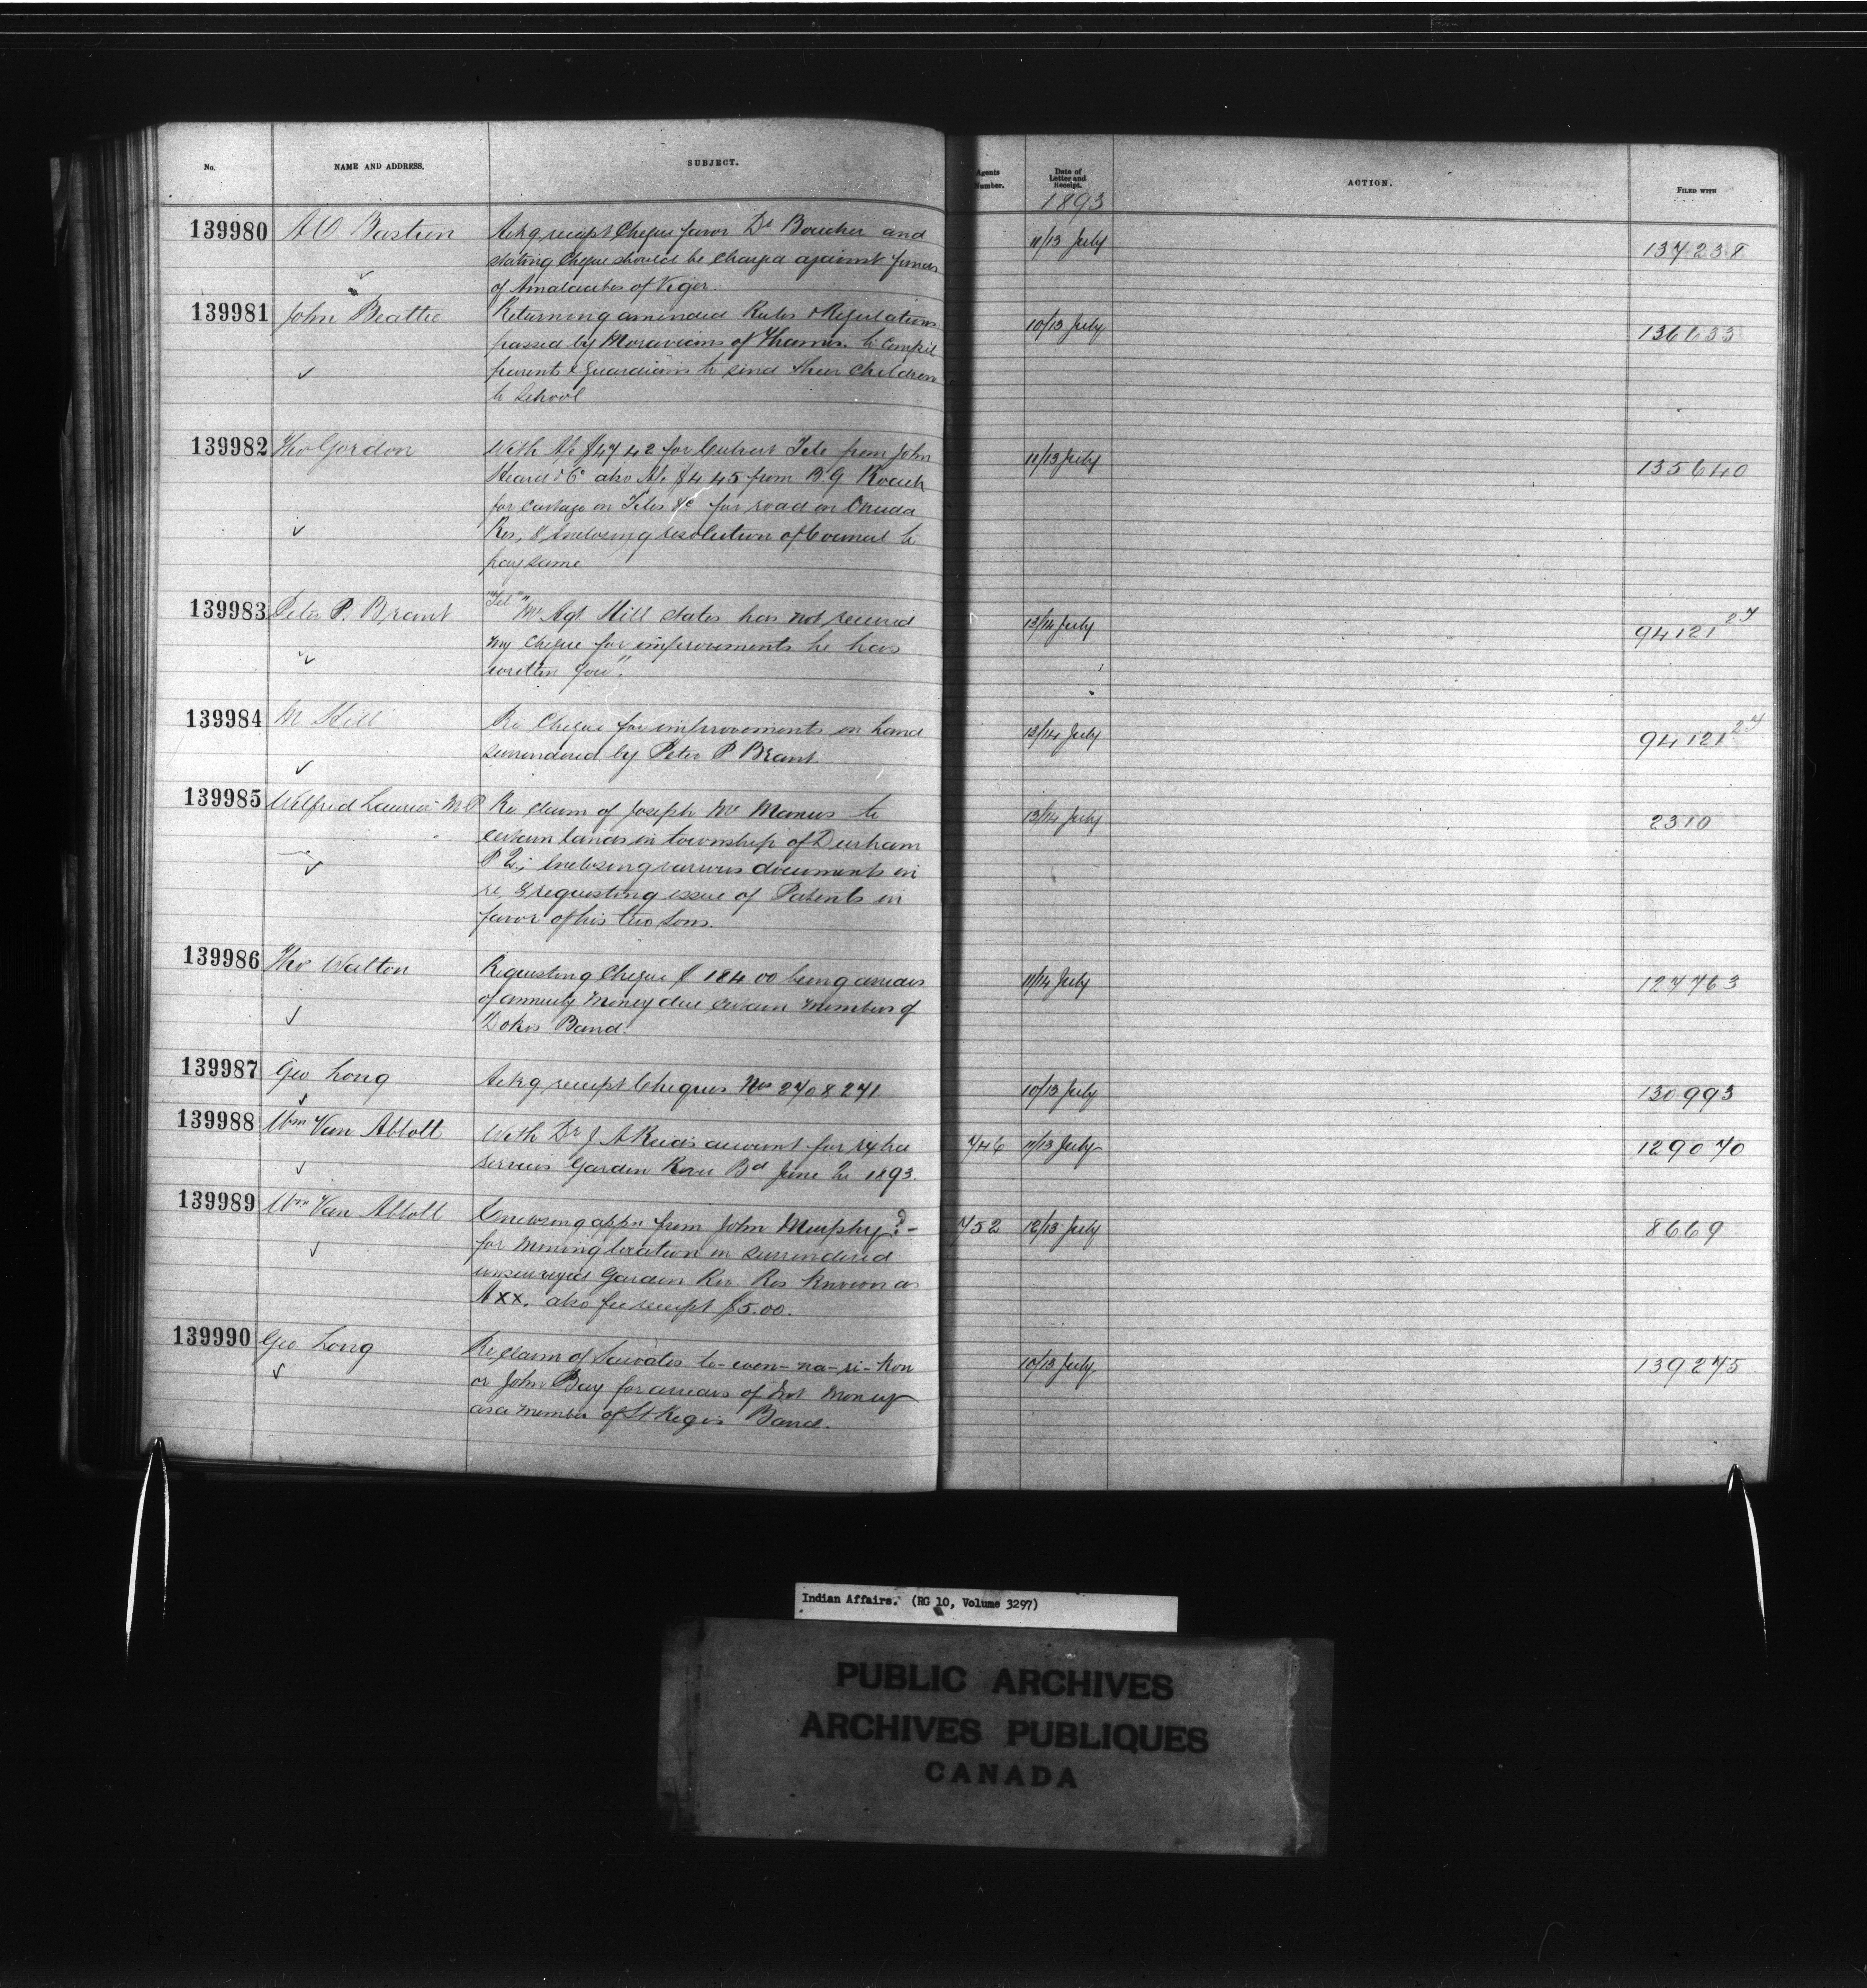 No.
NAME AND ADDRESS.
SUBJECT.
Agents Number.
Date of Letter and Receipt.
ACTION.
FILED WITH
1893
139980 A O Bastien
Ackg receipt Cheque favor Dr Boucher and
stating Cheque should be charged against funds
of Amalacites of Viger.
11/13 July
137238
139981 John Beattie
Returning amended Rules & Regulations
passed by Moravians of Thames. to Compel
parents & Guardians to send their Children
to School
10/13 July
136633
139982 Tho Gordon
With A/c $47 42 for Culvert Tile from John
Heard & Co also A/c $4 45 from B. G Roach
for Cartage on Tiles &c for road on Oneida
Res, & Enclosing resolution of Council to
pay same
11/13 July
135640
139983 Peter P. Brant
"Tel" "Mr Agt Hill states has not received
my Cheque for improvements he has
written you".
13/14 July
94121 27
139984 M Hill
Re Cheque for improvements on land
surrendered by Peter P Brant.
13/14 July
94121 27
139985 Wilfred Laurier M.P
Re claim of Joseph Mc Manus to
certain lands in township of Durham
P Q; Enclosing various documents in
re, & requesting issue of Patents in
favor of his two Sons.
13/14 July
2310
139986 Tho Walton
Requesting Cheque $ 184 00 being arrears
of annuity Money due certain members of
Dokis Band.
11/14 July
127763
139987 Geo Long
Ackg receipt Cheques Nos 270 & 271
10/13 July
130993
139988 Wm Van Abbott
With Dr J A Reid's account for
services Garden River Bd June Qr 1893.
746 11/13 July
129070
139989 Wm Van Abbott
Enclosing appn from John Murphy? -
for Mining location in surrendered
unsurveyed Garden Riv. Res known as
AXX. also fee receipt $5.00.
752 12/13 July
8669
139990 Geo Long
Re, claim of Sawatis to-wen-na-ri-kon
or John Bay for arrears of Int Money
as a member of St Regis Band.
10/13 July
139275
Indian Affairs. (RG 10, Volume 3297)
PUBLIC ARCHIVES
ARCHIVES PUBLIQUES
CANADA